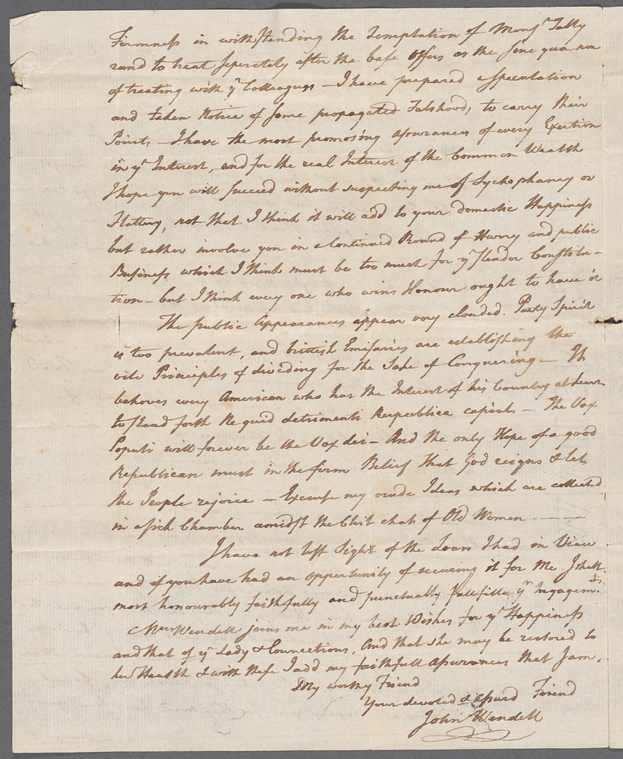 Firmness in withstanding the Temptation of Monsr Tally
rand to treat seperately after the base Offers as the sine qua non
of treating with yr Colleagues — I have prepared a speculation
and taken Notice of some propagated Falshood, to carry their
Points — I have the most promising assurances of every Exertion
in yr Interest, and for the real Interest of the Common Wealth
I hope you will succeed without suspecting me of Sychophancy or
Flattery, not that I think it will add to your domestic Happiness
but rather involve you in a Continued Round of Hurry and public
Business which I think must be too much for yr slender Constitu-
tion — but I think every one who wins Honour ought to have it
The public Appearances appear very clouded. Party Spirit
is too prevalent, and brittish Emissaries are establishing the
vile Principles of dividing for the Sake of Conquering — It
behoves every American who has the Interest of his Country at heart
to stand forth Ne quid detrimenti Respublica capiat — The Vox
Populi will forever be the Vox dei — And the only Hope of a good
Republican must in the firm Belief that God reigns & let
the People rejoice — Excuse my crude Ideas which are collected
in a sick Chamber amidst the Chit chats of Old Women
I have not lost Sight of the Loan I had in View
and if you have had an opportunity of securing it for me I shall
most honourably faithfully and punctually fullfill yr Ingagemts
Mrs Wendell joins me in my best Wishes for yr Happiness
and that of yr Lady & Connections, And that she may be restored to
her Health & with these I add my faithfull assurances that I am,
My worthy Friend
Your devoted & assured Friend
John Wendell